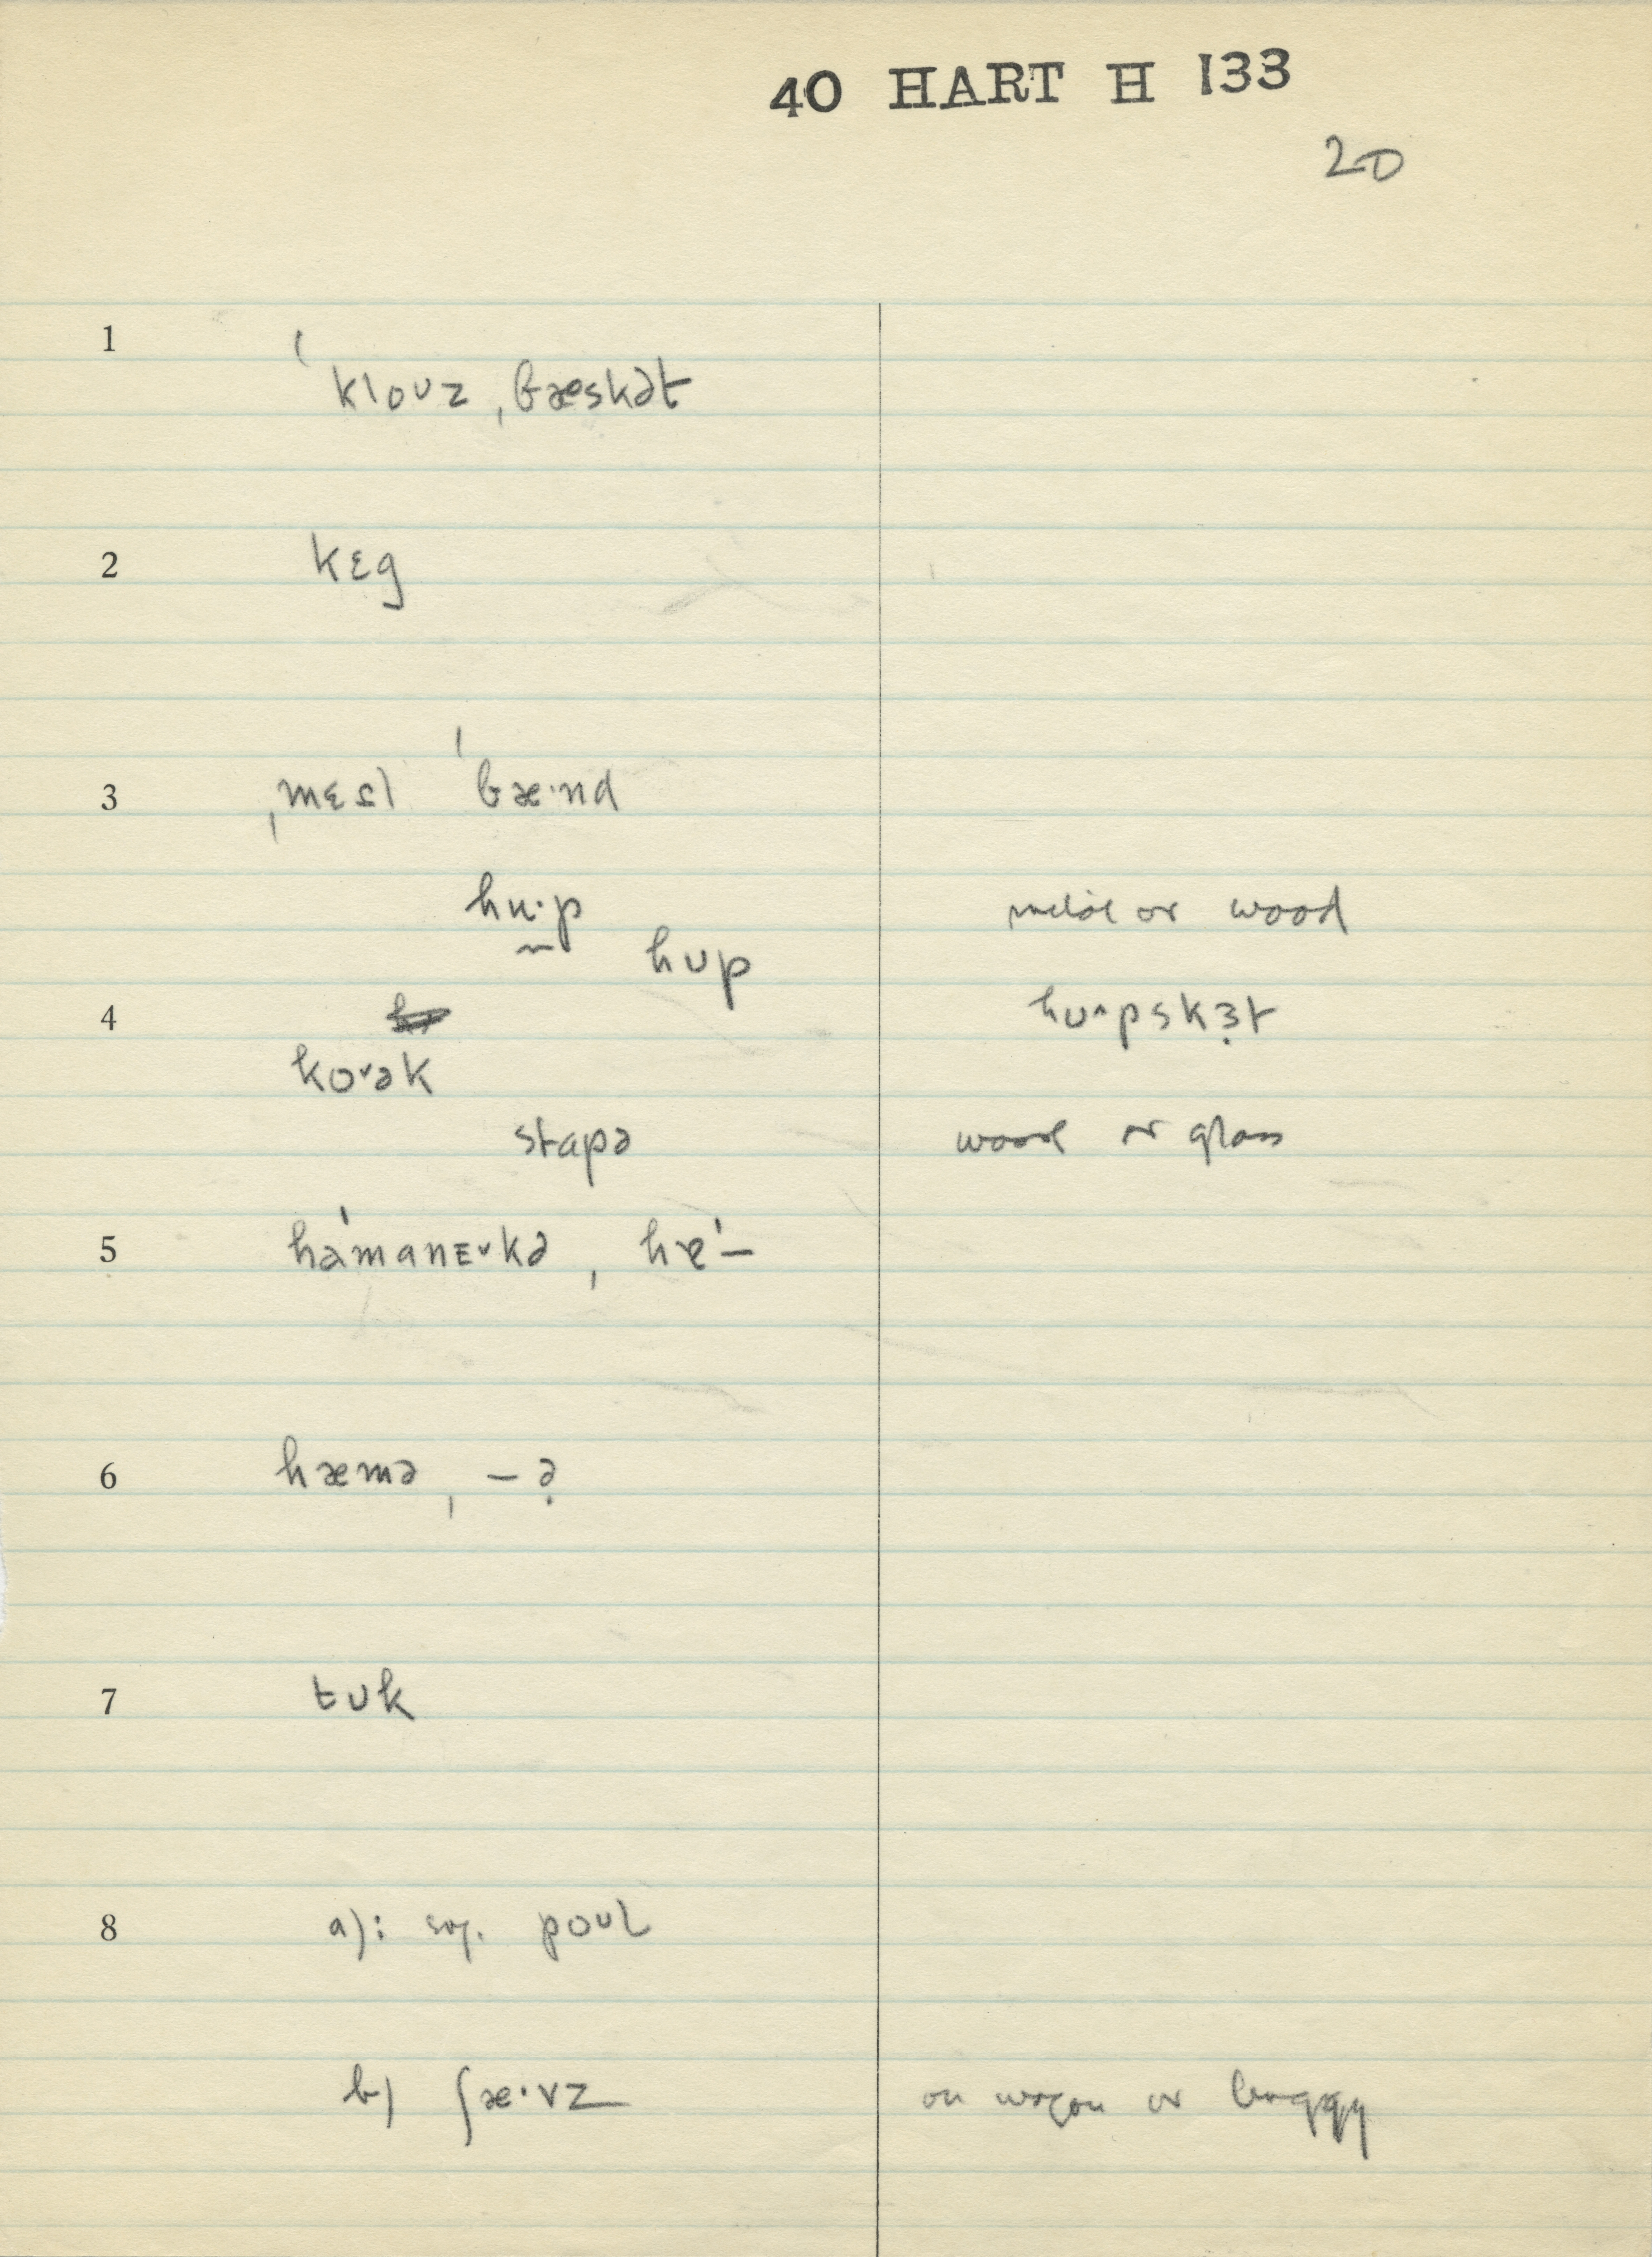 40 HART H 133
20
1 ˈklouz ˌbæskət
2 kɛg
3 ˌmɛsl ˈbæ·nd
hu·p metal or wood
hʊp
4 hʊ^pskɜ̣t
koˇək
stapə wood or glass
5 ha'manɛˇkə, hɐ'—
6 hæmə, —ə̣
7 tʊk
8 a): sg. poʊl
b) ʃæ·vz on wagon or buggy